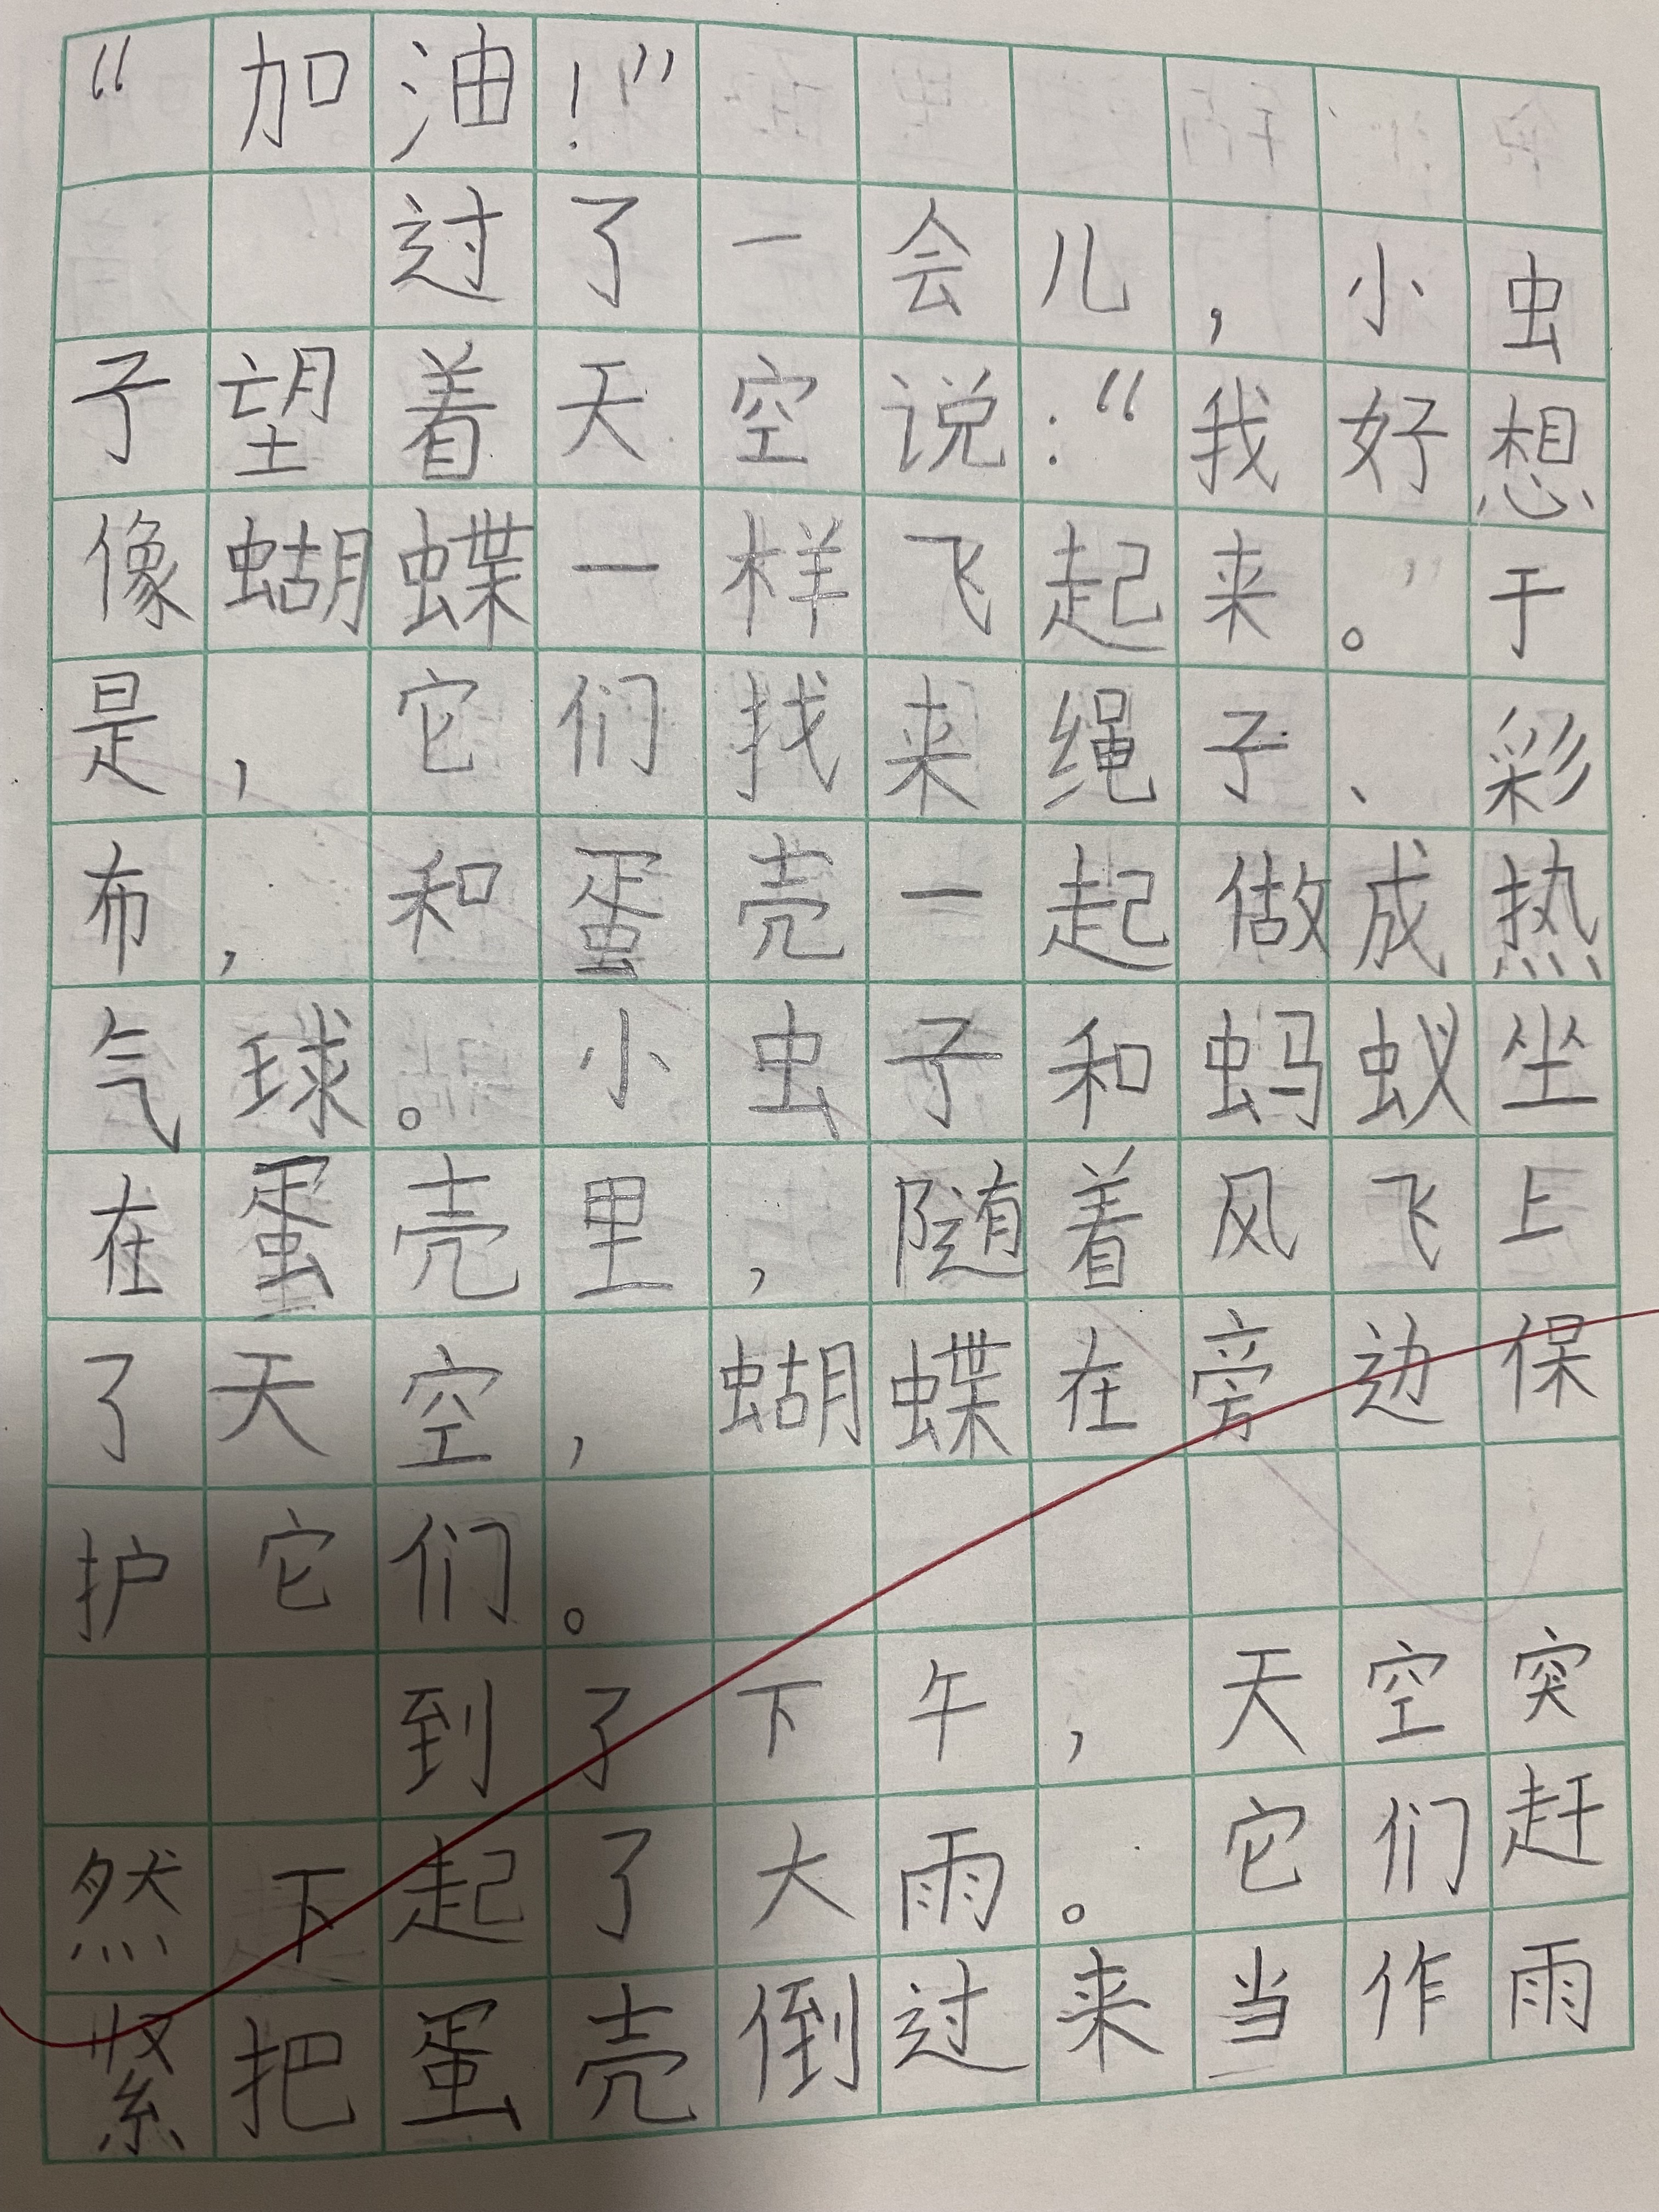 “加油！”
过了一会儿，小虫
子望着天空说：“我好想
像蝴蝶一样飞起来。”于
是，它们找来绳子、彩
布，和蛋壳一起做成热
气球。小虫子和蚂蚁坐
在蛋壳里，随着风飞上
了天空，蝴蝶在旁边保
护它们。
到了下午，天空突
然下起了大雨。它们赶
紧把蛋壳倒过来当作雨